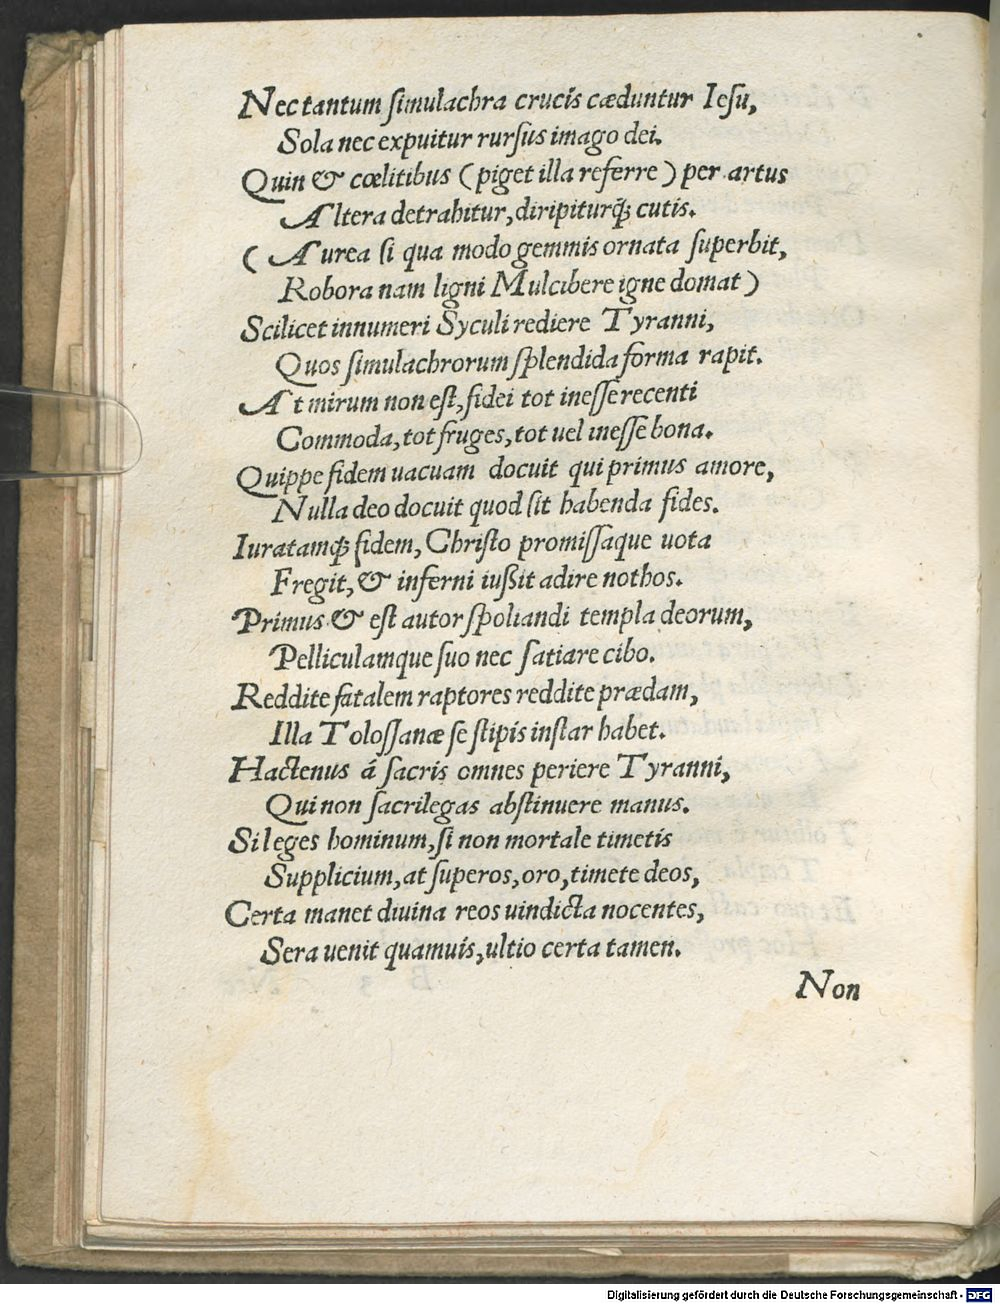 Nec tantum ſimulachra crucis cæduntur Ieſu,
Sola nec expuitur rurſus imago dei.
Quin & cœlitibus (piget illa referre) per artus
Altera detrahitur, diripiturq́; cutis.
(Aurea ſi qua modo gemmis ornata ſuperbit,
Robora nam ligni Mulcibere igne domat)
Scilicet innumeri Syculi rediere Tyranni,
Quos ſimulachrorum ſplendida forma rapit.
At mirum non eſt, fidei tot ineſſe recenti
Commoda, tot fruges, tot uel ineſſe bona.
Quippe fidem uacuam docuit qui primus amore,
Nulla deo docuit quod ſit habenda fides.
Iuratamq́; fidem, Chriſto promiſſaque uota
Fregit, & inferni iußit adire nothos.
Primus & eſt autor ſpoliandi templa deorum,
Pelliculamque ſuo nec ſatiare cibo.
Reddite fatalem raptores reddite prædam,
Illa Toloſſanæ ſe ſtipis inſtar habet.
Hactenus á ſacris omnes periere Tyranni,
Qui non ſacrilegas abſtinuere manus.
Si leges hominum, ſi non mortale timetis
Supplicium, at ſuperos, oro, timete deos,
Certa manet diuina reos uindicta nocentes,
Sera uenit quamuis, ultio certa tamen.
Non
Digitalisierung gefördert durch die Deutsche Forschungsgemeinschaft - DFG